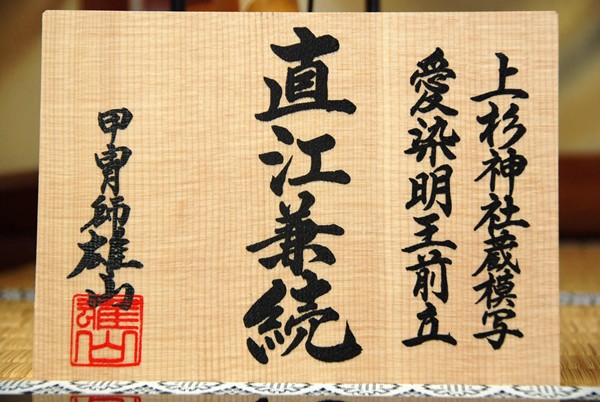 上杉神社蔵模写
愛染明王前立
直江兼続
甲冑師雄山
雄山